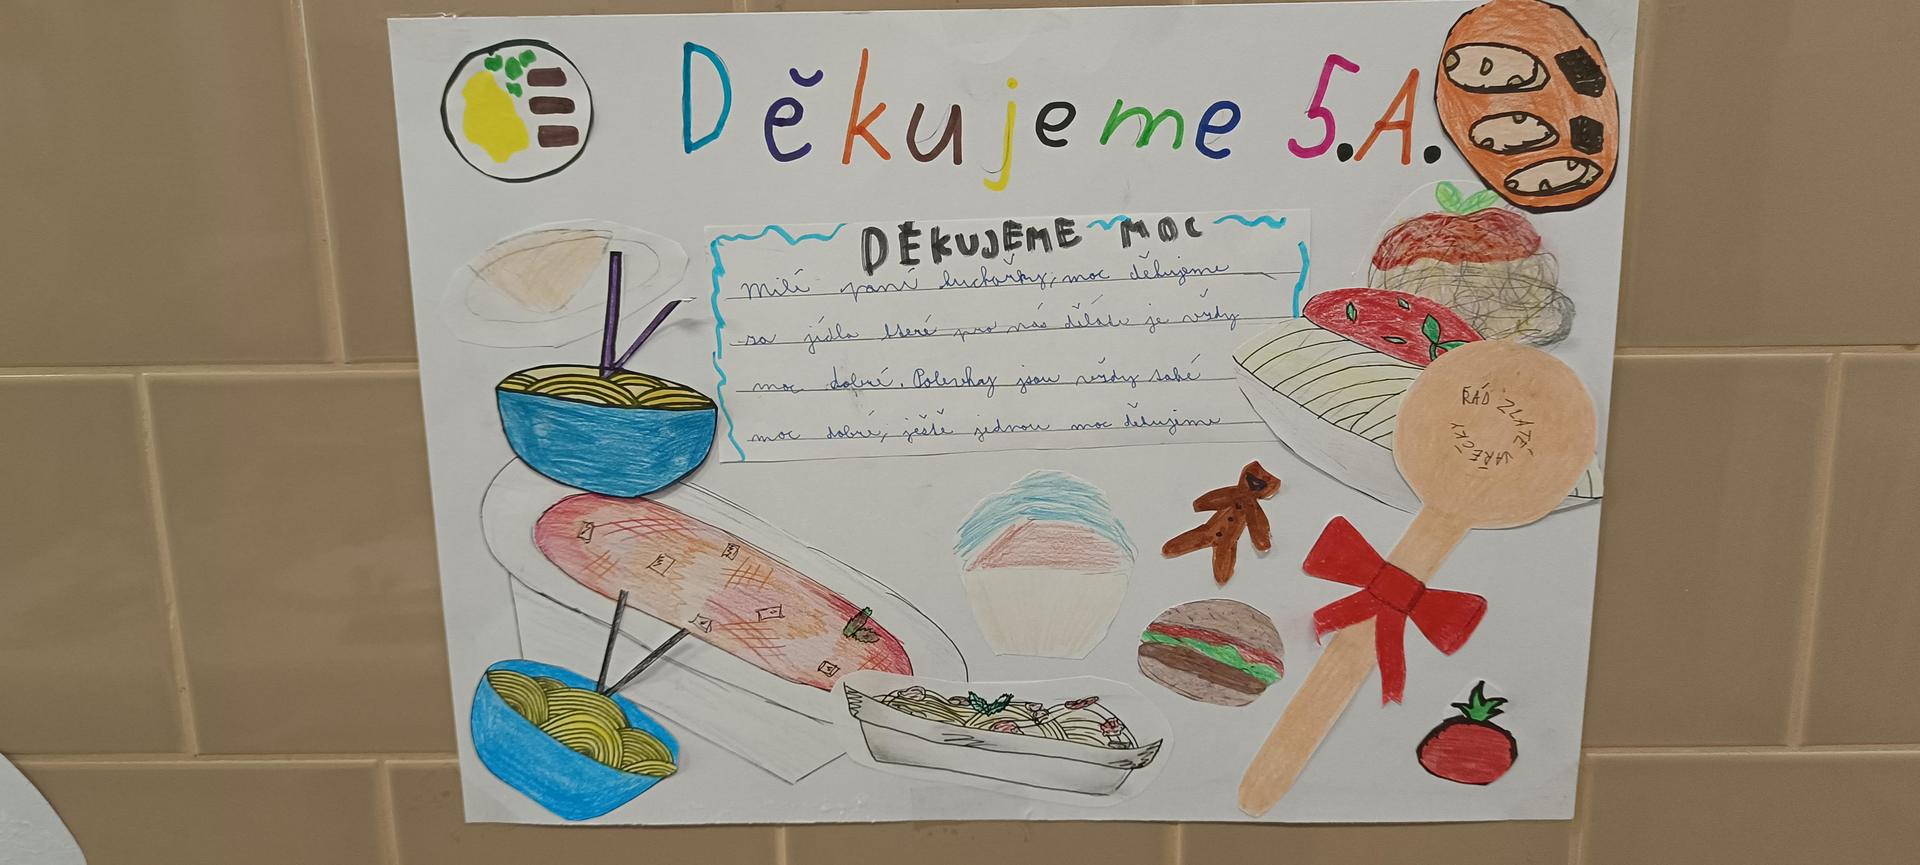 Děkujeme 5.A.
DĚKUJEME MOC
Milé paní kuchařky, moc děkujeme
za jídla které pro nás děláte je vždy
moc dobré. Polevky jsou vždy také
moc dobré, ještě jednou moc děkujeme
ŘÁD ZLATÉ VAŘEČKY